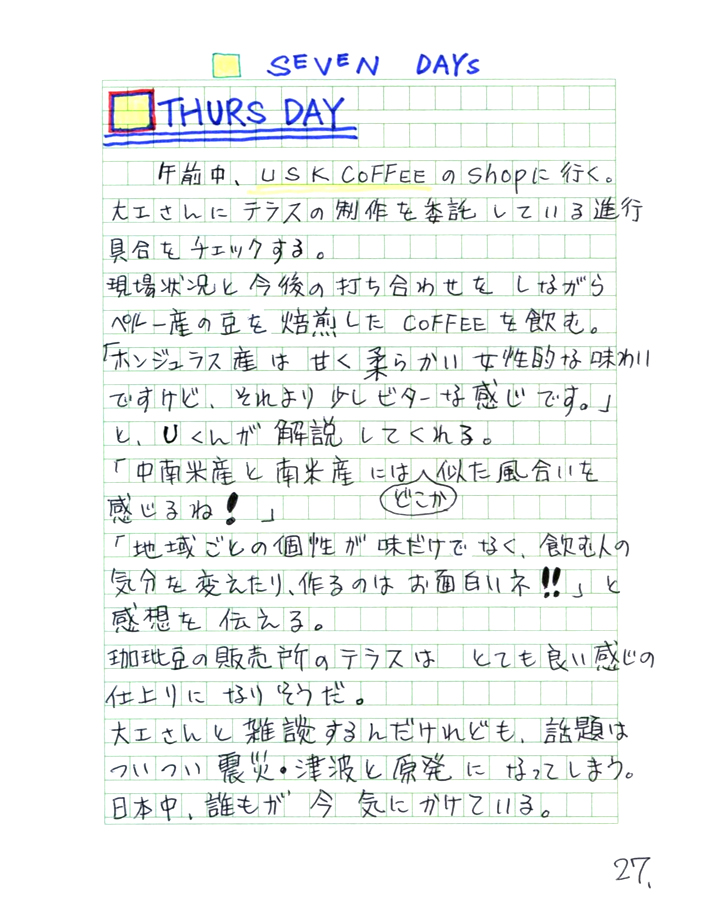 SEVEN DAYS
THURSDAY
午前中、USK COFFEEのshopに行く。
大工さんにテラスの制作を委託している進行
具合をチェックする。
現場状況と今後の打ち合わせをしながら
ペルー産の豆を焙煎したCOFFEEを飲む。
「ホンジュラス産は甘く柔らかい女性的な味わい
ですけど、それより少しビターな感じです。」
と、Uくんが解説してくれる。
「中南米産と南米産にはどこか似た風合いを
感じるね!」
「地域ごとの個性が味だけでなく、飲む人の
気分を変えたり、作るのはお面白いネ!!」と
感想を伝える。
珈琲豆の販売所のテラスはとても良い感じの
仕上りになりそうだ。
大工さんと雑談するんだけれども、話題は
ついつい震災・津波と原発になってしまう。
日本中、誰もが今気にかけている。
27.